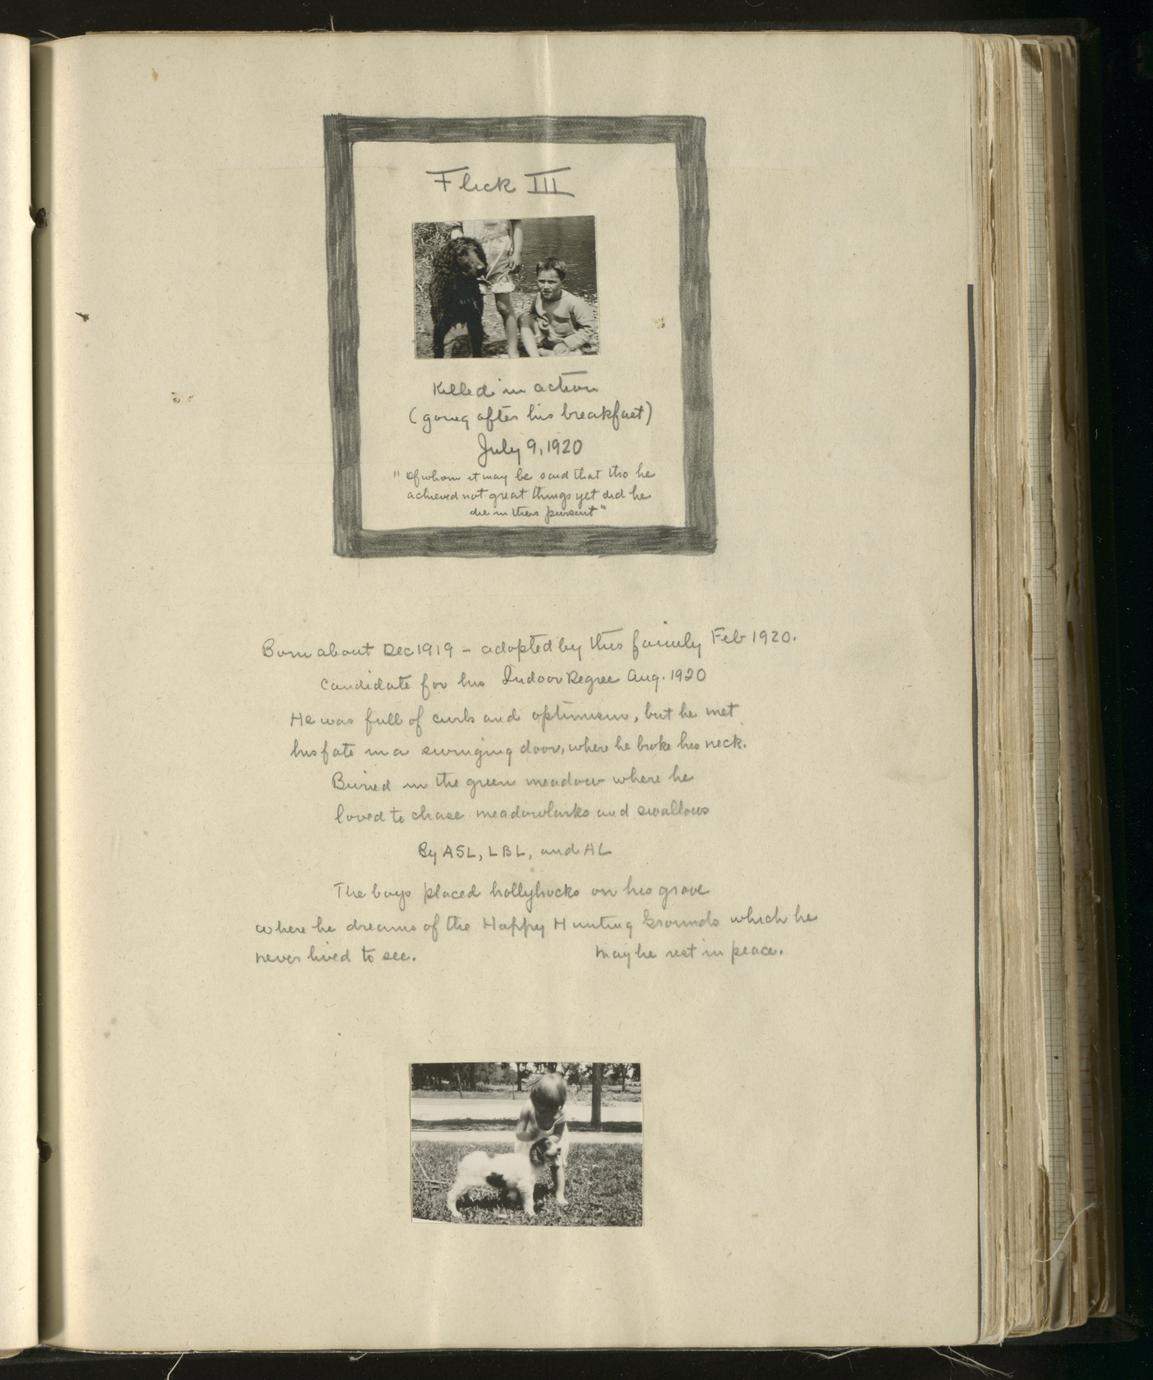 Flick III
Killed in action
(going after his breakfast)
July 9, 1920
"Of whom it may be said that tho he
achieved not great things yet did he
die in their pursuit"
Born about Dec 1919 - adopted by this family Feb 1920.
Candidate for his Indoor Degree Aug. 1920
He was full of curls and optimism, but he met
his fate in a swinging door, where he broke his neck.
Buried in the green meadow where he
loved to chase meadowlarks and swallows
By ASL, LBL, and AL
The boys placed hollyhocks on his grave
where he dreams of the Happy Hunting Grounds which he
never lived to see. May he rest in peace.